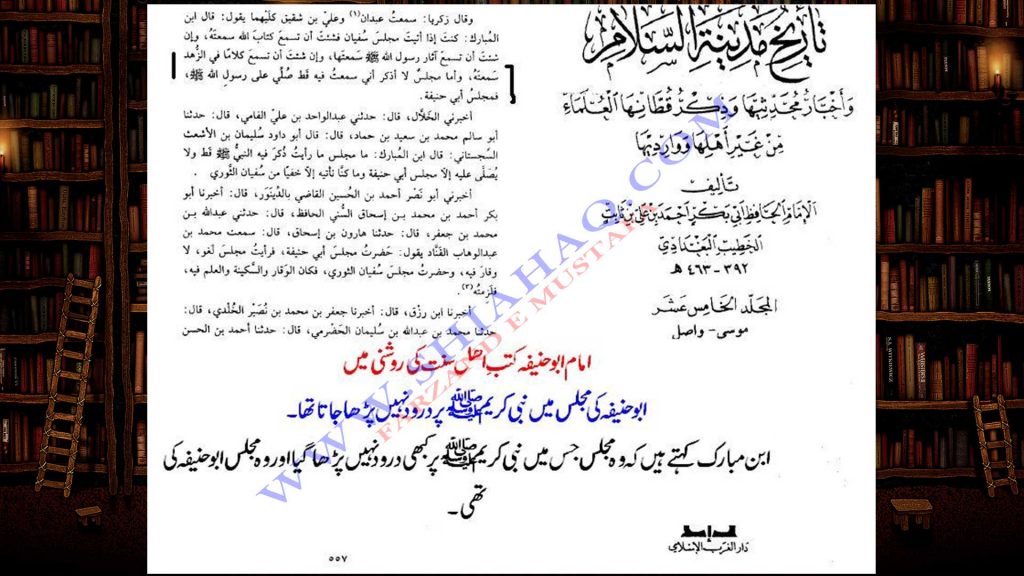 تاريخ مدينة السلام
وأخبار محدثيها وذكر قطانها العلماء
من غير أهلها ووارديها
تأليف
الإمام الحافظ أبي بكر أحمد بن علي بن ثابت
الخطيب البغدادي
٣٩٢ - ٤٦٣ هـ
المجلد الخامس عشر
موسى - واصل
وقال زكريا: سمعتُ عبدان(١) وعليّ بن شقيق كليهما يقول: قال ابن
المُبارك: كنتُ إذا أتيتَ مجلسَ سُفيان فشئتَ أن تسمعَ كتابَ الله سمعتَهُ، وإن
شئتَ أن تسمعَ آثار رسول الله ﷺ سمعتَها، وإن شئتَ أن تسمعَ كلامًا في الزُّهد
سمعتَهُ، وأما مجلسٌ لا أذكر أني سمعتُ فيه قط صُلِّي على رسول الله ﷺ،
فمجلسُ أبي حنيفة.
أخبرني الخَلَّال، قال: حدثني عبدالواحد بن عليّ الفامي، قال: حدثنا
أبو سالم محمد بن سعيد بن حماد، قال: قال أبو داود سُليمان بن الأشعث
السِّجستاني: قال ابن المُبارك: ما مجلس ما رأيتُ ذُكِرَ فيه النبيُّ ﷺ قط ولا
يُصَلَّى عليه إلّا مجلس أبي حنيفة وما كنَّا نأتيه إلّا خفيًا من سُفيان الثَّوري.
أخبرني أبو نَصْر أحمد بن الحُسين القاضي بالدِّينَوَر، قال: أخبرنا أبو
بكر أحمد بن محمد بن إسحاق السُّني الحافظ، قال: حدثني عبدالله بن
محمد بن جعفر، قال: حدثنا هارون بن إسحاق، قال: سمعت محمد بن
عبدالوهاب القَنَّاد يقول: حَضرتُ مجلسَ أبي حنيفة، فرأيتُ مجلسَ لغو، لا
وقارَ فيه، وحضرتُ مجلسَ سُفيان الثوري، فكان الوَقار والسَّكينة والعلم فيه،
فلَزِمتُه(٣).
أخبرنا ابن رزْق، قال: أخبرنا جعفر بن محمد بن نُصَيْر الخُلدي، قال:
حدثنا محمد بن عبدالله بن سُليمان الحَضْرمي، قال: حدثنا أحمد بن الحسن
امام ابو حنیفہ کتب اھل سنت کی روشنی میں
ابو حنیفہ کی مجلس میں نبی کریم ﷺ پر درود نہیں پڑھا جاتا تھا۔
ابن مبارک کہتے ہیں کہ وہ مجلس جس میں نبی کریم ﷺ پر کبھی درود نہیں پڑھا گیا اور وہ مجلس ابو حنیفہ کی
تھی۔
دار الغرب الإسلامي
٥٥٧
WWW.SHIAHAQ.COM
FARZAND E MUSTAFA